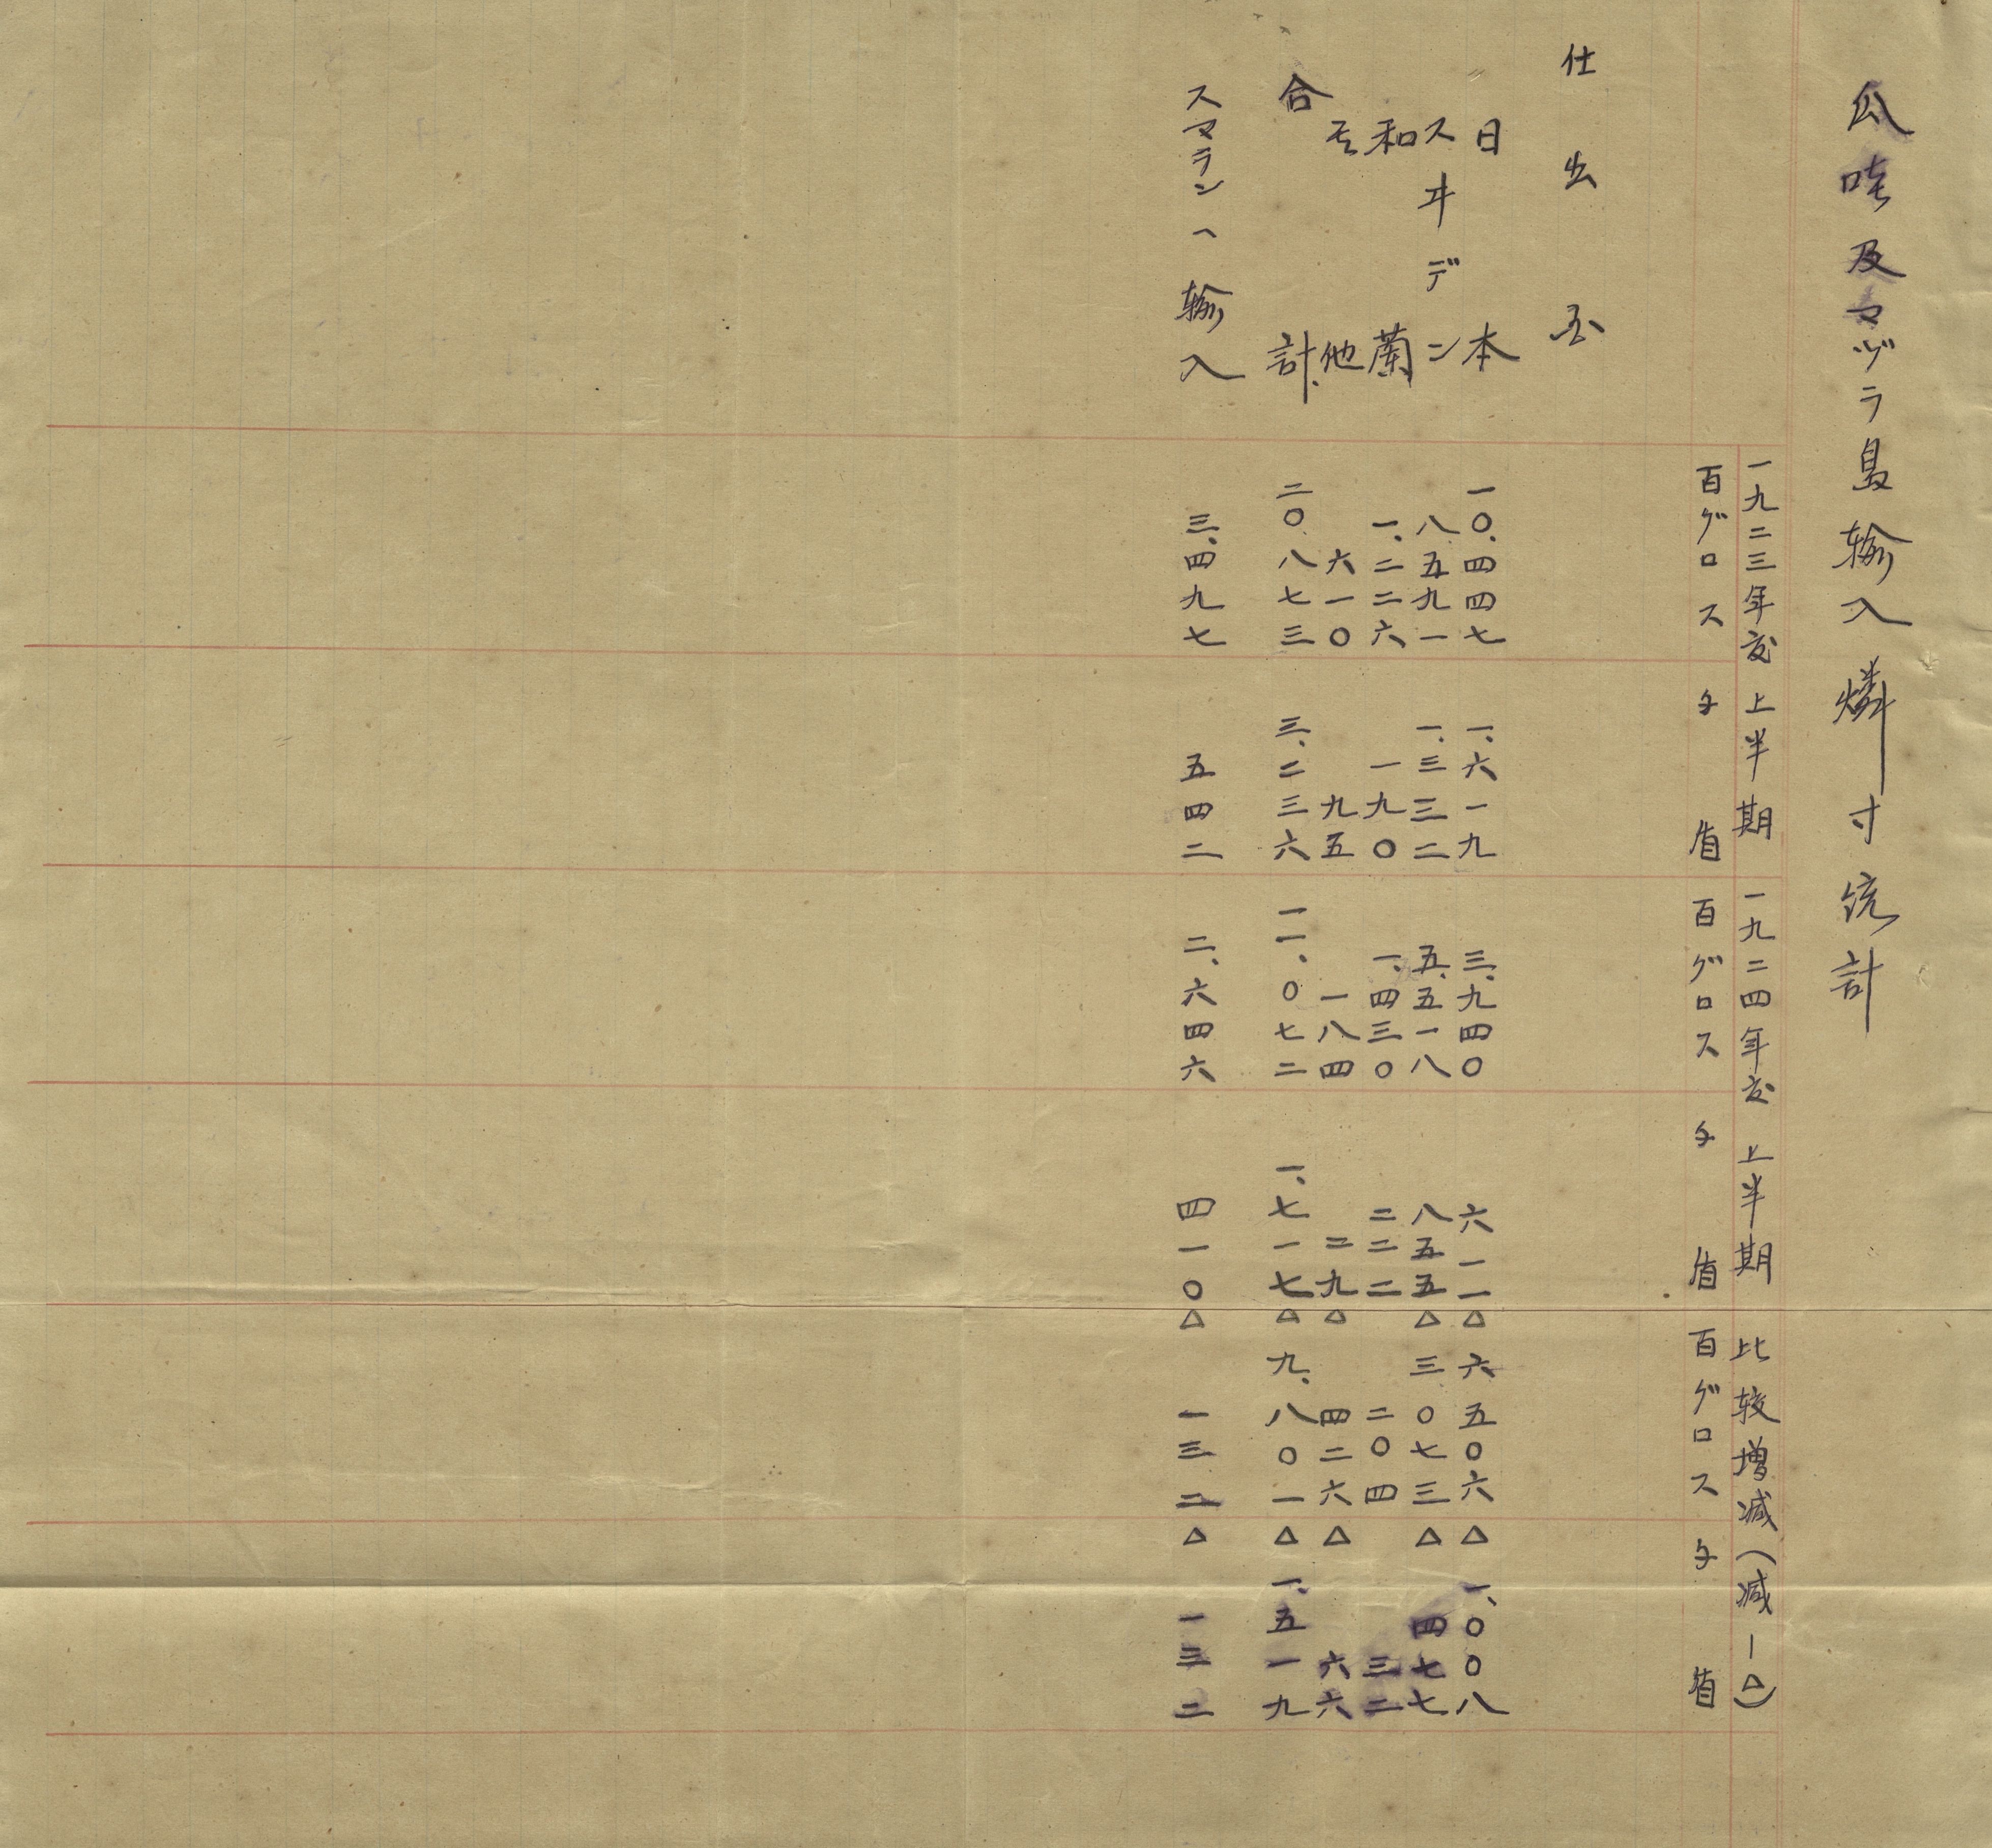 瓜哇及マヅラ島輸入燐寸統計
一九二三年度上半期 一九二四年度上半期 比較増減(減ー△)
百グロス 千盾 百グロス 千盾 百グロス 千盾
仕出国
日本 一〇、四四七 一、六一九 三、九四〇 六一一 △六五〇六 △一、〇〇八
スヰデン 八五九一 一、三三二 五、五一八 八五五 △三〇七三 △四七七
和蘭 一、二二六 一九〇 一、四三〇 二二二 二〇四 三二
其他 六一〇 九五 一八四 二九 △四二六 △六六
合計 二〇八七三 三、二三六 一一、〇七二 一、七一七 △九、八〇一 △一、五一九
スマランヘ輸入 三、四九七 五四二 二、六四六 四一〇 △一三二 △一三二